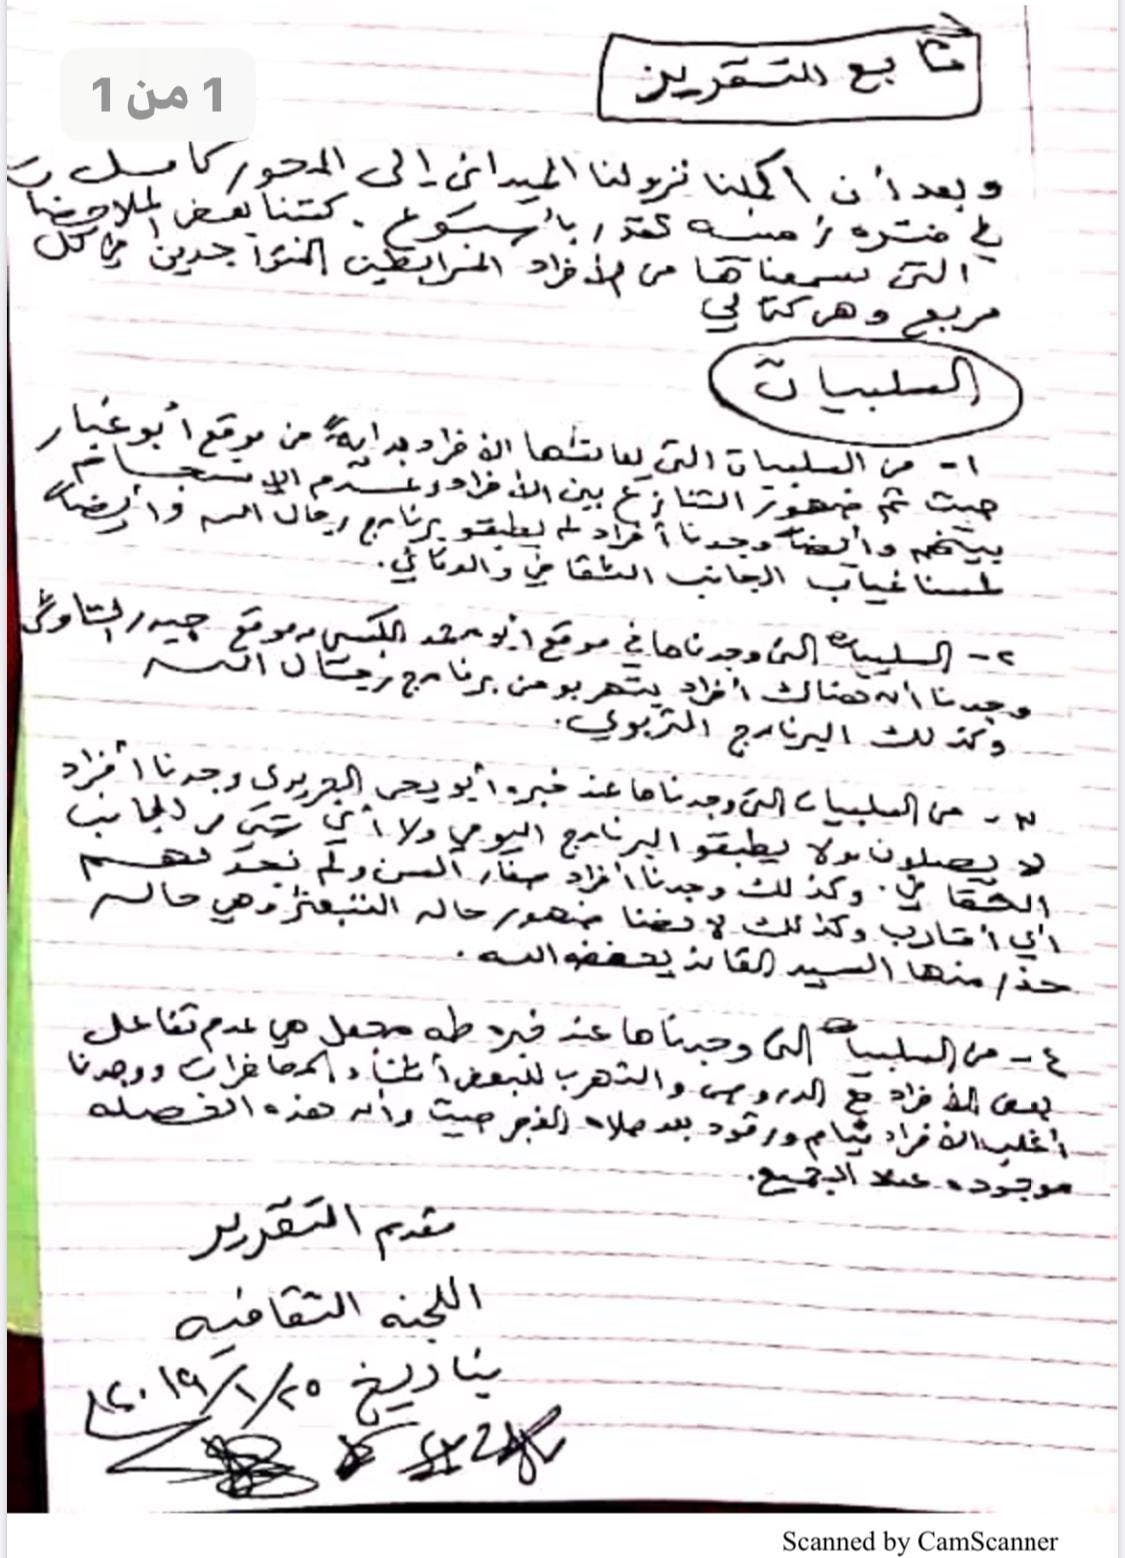 1 من 1
تابع التقرير
وبعد أن أكملنا نزولنا الميداني إلى المحور كامل
في فتره زمنيه تقدر بأسبوع. كتبنا بعض الملاحضا
التي سمعناها من الأفراد المرابطين المتواجدين في كل
مربع وهي كتالي
السلبيات
١- من السلبيات التي لها الافراد بدايةً من موقع أبو غبار
حيث تم ضهور التنازع بين الأفراد وعدم الإنسجام
بينهم وأيضاً وجدنا أفراد لم يطبقو برنامج رجال الله وأيضاً
لمسنا غياب الجانب الثقافي والدعائي.
٢- السلبيات التي وجدناها في موقع أبو محمد وموقع حيدر
وجدنا أنه هناك أفراد يتهربو من برنامج رجال الله
وكذلك البرنامج التربوي.
٣- من السلبيات التي وجدناها عند أبو يحي وجدنا أفراد
لا يصلون ولا يطبقو البرنامج اليومي ولا أي شي من الجانب
الثقافي. وكذلك وجدنا أفراد صغار السن ولم نجد لهم
أي أقارب وكذلك لاحضنا ضهور حاله وهي حاله
حذر منها السيد القائد يحفضه الله.
٤- من السلبيات التي وجدناها عند طه هي عدم تفاعل
بعض الأفراد مع الدروس والتهرب للبعض أثناء المحاضرات ووجدنا
أغلب الافراد نيام ورقود بعد صلاه الفجر حيث وأنه هذه الخصله
موجوده عند الجميع.
مقدم التقرير
اللجنه الثقافيه
بتاريخ ٢٥/١/٢٠١٩م
Scanned by CamScanner